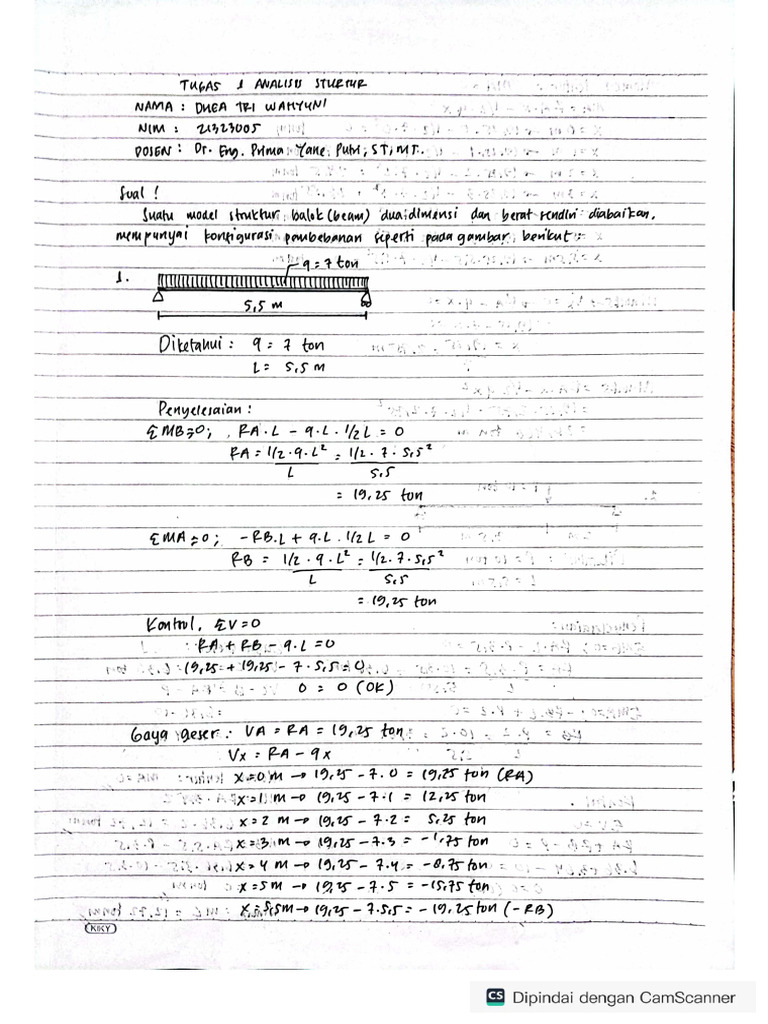 TUGAS 1 ANALISIS STURTUR
NAMA : DHEA TRI WAHYUNI
NIM : 21323005
DOSEN : Dr. Eng. Prima Yane Putri, ST, MT.
Soal !
Suatu model struktur balok (beam) dua dimensi dan berat sendiri diabaikan,
mempunyai konfigurasi pembebanan seperti pada gambar berikut :
q = 7 ton
1.
5,5 m
Diketahui : q = 7 ton
L = 5,5 m
Penyelesaian :
ΣMB=0; RA.L - q.L.1/2 L = 0
RA = 1/2.q.L² = 1/2.7.5,5²
L 5,5
= 19,25 ton
ΣMA=0; -RB.L + q.L.1/2 L = 0
RB = 1/2.q.L² = 1/2.7.5,5²
L 5,5
= 19,25 ton
Kontrol, ΣV=0
RA + RB - q.L = 0
19,25 + 19,25 - 7.5,5 = 0
0 = 0 (OK)
Gaya geser : VA = RA = 19,25 ton
Vx = RA - qx
x=0 m → 19,25 - 7.0 = 19,25 ton (RA)
x=1 m → 19,25 - 7.1 = 12,25 ton
x=2 m → 19,25 - 7.2 = 5,25 ton
x=3 m → 19,25 - 7.3 = -1,75 ton
x=4 m → 19,25 - 7.4 = -8,75 ton
x=5 m → 19,25 - 7.5 = -15,75 ton
x=5,5m → 19,25 - 7.5,5 = -19,25 ton (-RB)
KIKY
CS Dipindai dengan CamScanner